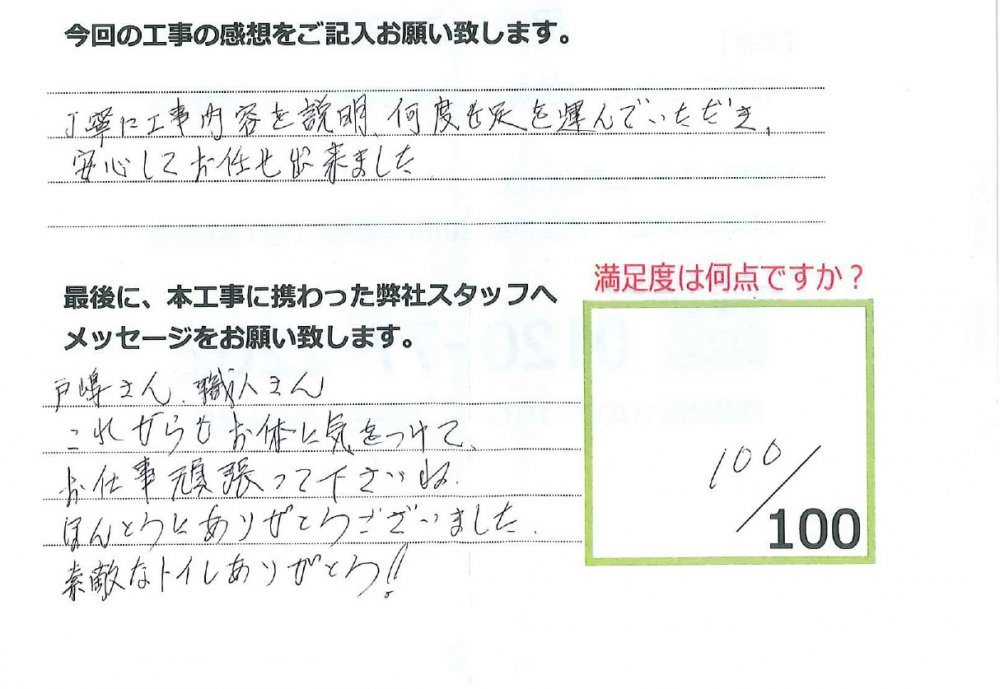 今回の工事の感想をご記入お願い致します。
丁寧に工事内容を説明、何度も足を運んでいただき、
安心してお任せ出来ました
最後に、本工事に携わった弊社スタッフへ
メッセージをお願い致します。
戸嶋さん、職人さん
これからもお体に気をつけて、
お仕事頑張って下さいね.
ほんとうにありがとうございました.
素敵なトイレありがとう!!
満足度は何点ですか？
100/
100